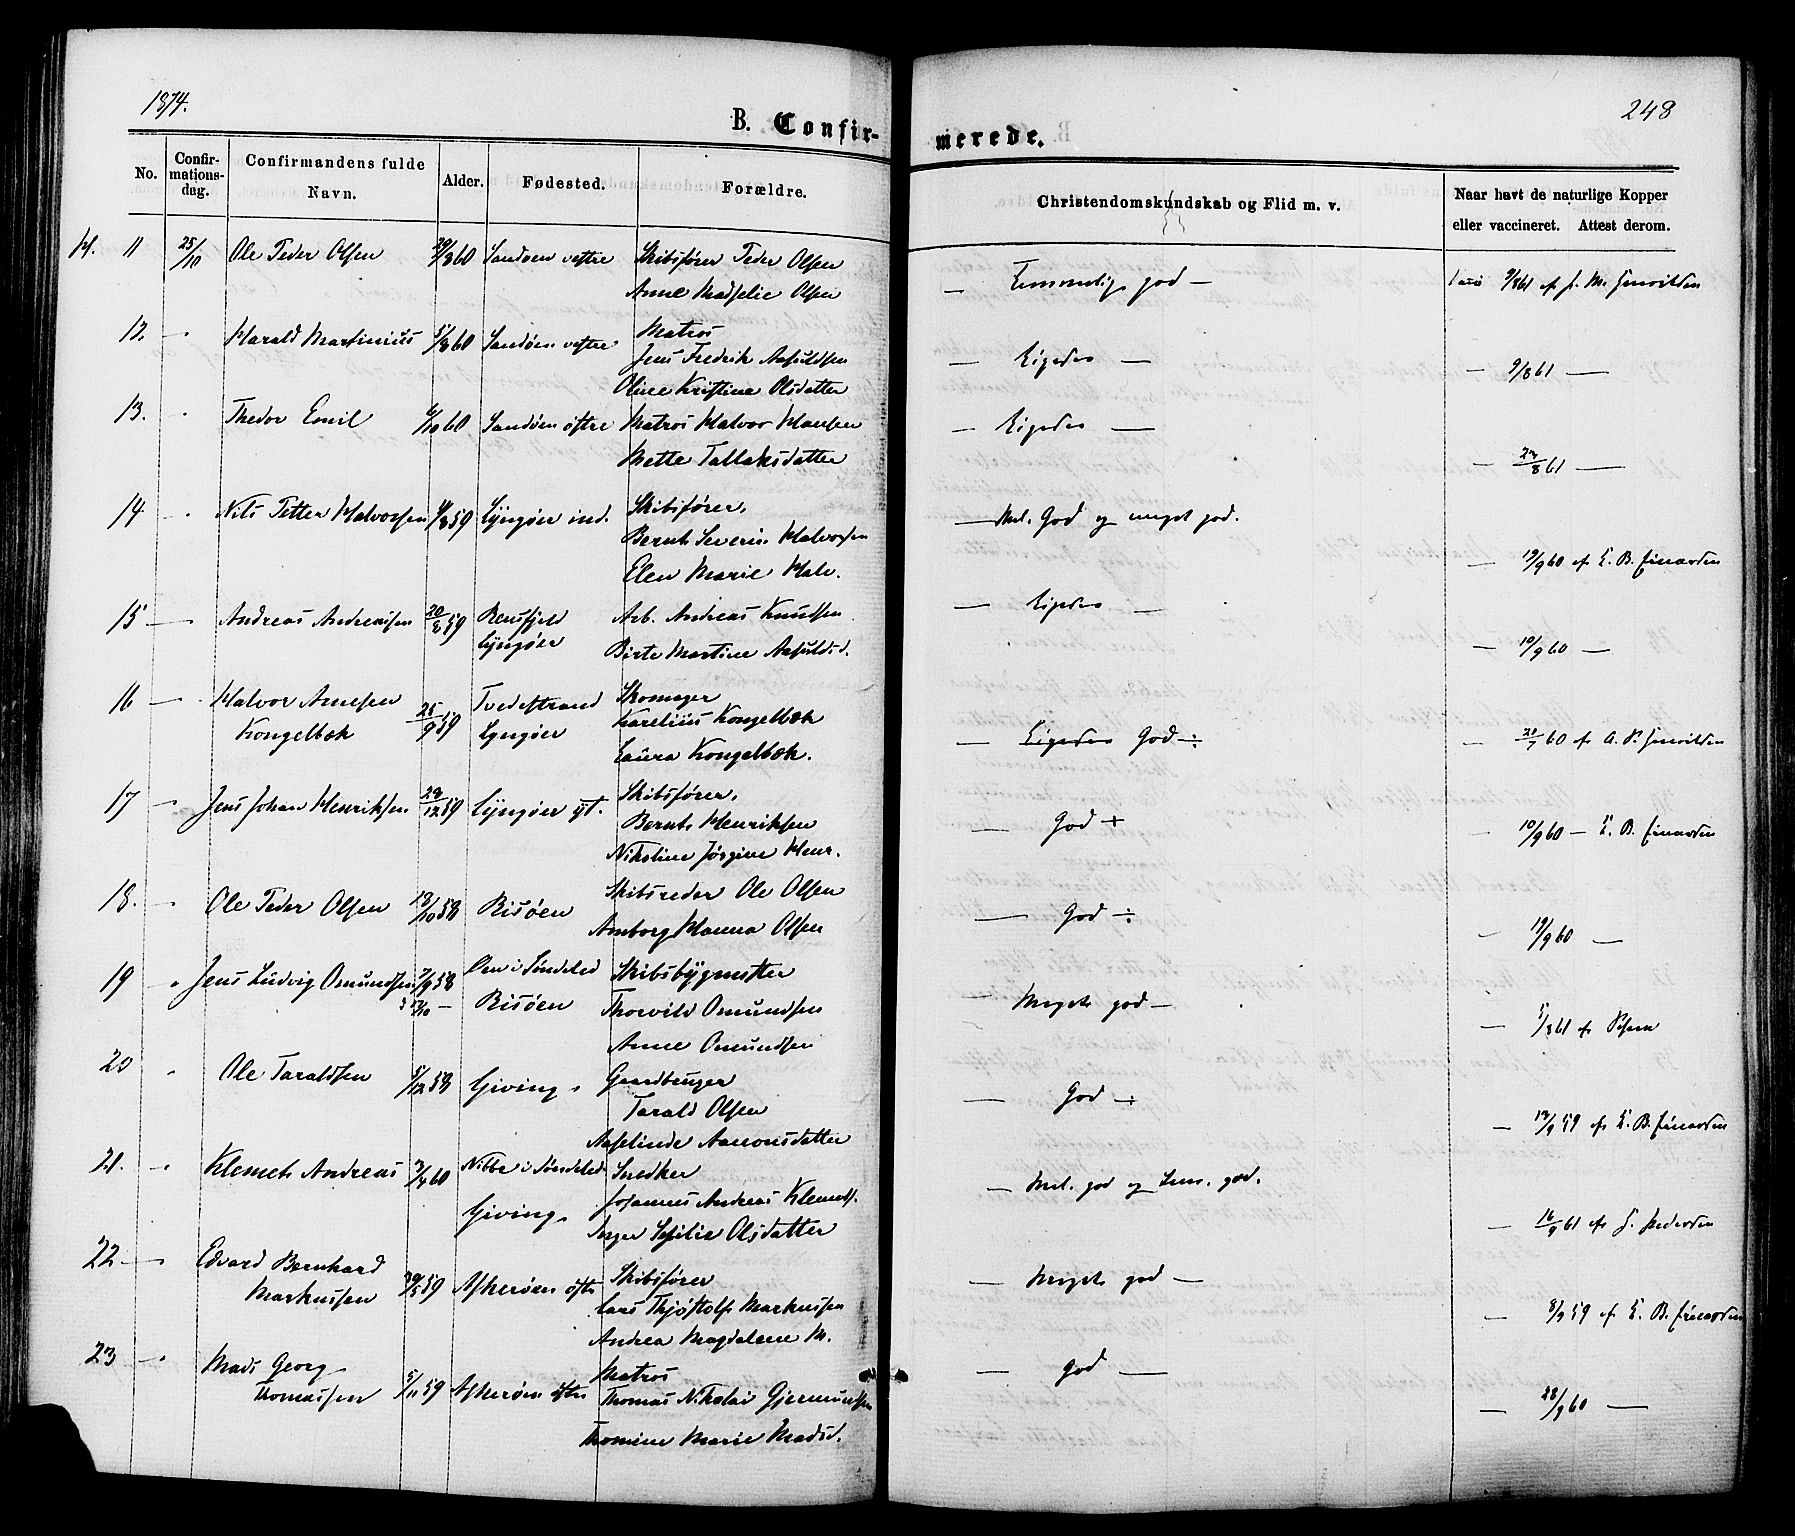 1874.
248
B. Confir-
merede.
No.
Confir-
mations-
dag.
Confirmandens fulde
Navn.
Alder.
Fødested.
Forældre.
Christendomskundskab og Flid m. v.
Naar havt de naturlige Kopper
eller vaccineret. Attest derom.
11 25/10 Ole Peder Olsen 60 Sandøen vestre Skibsfører Peder Olsen
Anne Olsen
Temmelig god —
12. " Harald Martinius 5/8 60 Sandøen vestre Matros
Jens Fredrik Aasuldsen
Oline Kristine Olsdatter
— Ligedes —
— 9/8 61 —
13. " Thedor Emil 6/10 60 Sandøen østre Matros Halvor Hansen
Mette Tallaksdatter
— Ligedes —
— 61 —
14 " Nils Petter Halvorsen 59 Lyngøer ind. Skibsfører,
Bernt Severin Halvorsen
Elen Marie Halv.
— Mel. God og meget god.
— 19/9 60 af E. B.
15 — " Andreas Andreassen 20/8 59 Lyngøer
Arb. Andreas Knudsen
Birte Martine Aasuldsd.
— Ligedes —
— 10/9 60 —
16 — " Halvor Arnesen
Kongelbæk
25/9 59 Tvedestrand
Lyngøer
Skomager
Karelius Kongelbæk
Laura Kongelbæk.
— Ligedes God ÷
60 af A.
17 — " Jens Johan Henriksen 59 Lyngøer yt. Skibsfører,
Bernt Henriksen
Nikoline Jørgine Henr.
— God +
— 10/9 60 — E. B.
18. — " Ole Peder Olsen 58 Risøen Skibsreder Ole Olsen
Amborg Hanna Olsen
— God ÷
— 19/9 60 —
19 " Jens Ludvig Omundsen 7/9 58 i Søndeled
Risøen
Skibsbygmester
Thorvild Omundsen
Anne Omundsen
— Meget god —
— 61 af
20 " Ole Taraldsen 5/12 58 Giving " Gaardbruger
Tarald Olsen
Aaselinde Aanonsdatter
— God ÷
— 59 af E. B.
21. — " Klemet Andreas 3/4 60 Nibbe i Søndeled
Giving "
Snedker
Johannes Andreas Klemets.
Inger Olsdatter
— Mel. god og tem. god.
— 16/9 61 af
22 — " Edvard Bernhard
Markussen
59 Askerøen østre Skibsfører
Lars Thjøstolf Markussen
Andrea Magdalene M.
— Meget god —
— 8/9 59 af E. B.
23 — " Mads Georg
Thomassen
5/11 59 Askerøen østre
Matros
Thomas Nikolai Gjermundsen
Thomine Marie Madsd.
— God —
— 28/9 60 —